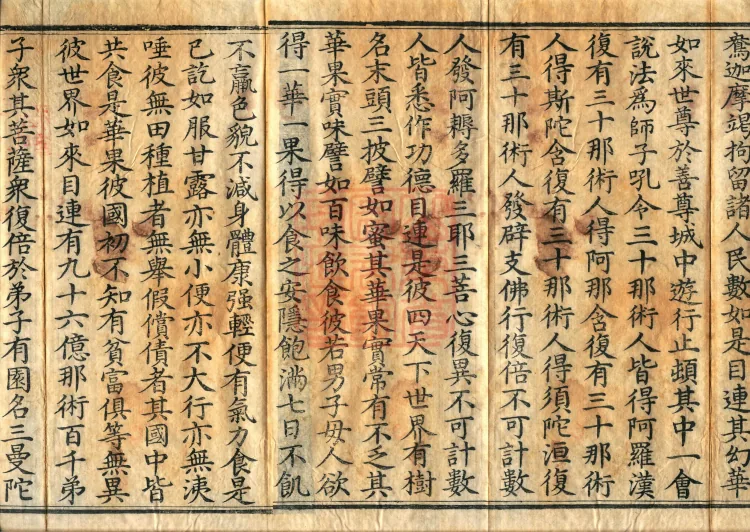 鴦迦摩竭拘留諸人民數如是目連其幻華
如來世尊於善尊城中遊行止頓其中一會
說法爲師子吼令三十那術人皆得阿羅漢
復有三十那術人得阿那含復有三十那術
人得斯陀含復有三十那術人得須陀洹復
有三十那術人發辟支佛行復倍不可計數
人發阿耨多羅三耶三菩心復異不可計數
人皆悉作功德目連是彼四天下世界有樹
名末頭三披譬如蜜其華果實常有不乏其
華果實味譬如百味飲食彼若男子母人欲
得一華一果得以食之安隱飽滿七日不飢
不羸色貌不減身體康强輕便有氣力食是
已訖如服甘露亦無小便亦不大行亦無洟
唾彼無田種植者無舉假償債者其國中皆
共食是華果彼國初不知有貧富俱等無異
彼世界如來目連有九十六億那術百千弟
子衆其菩薩衆復倍於弟子有園名三曼陀